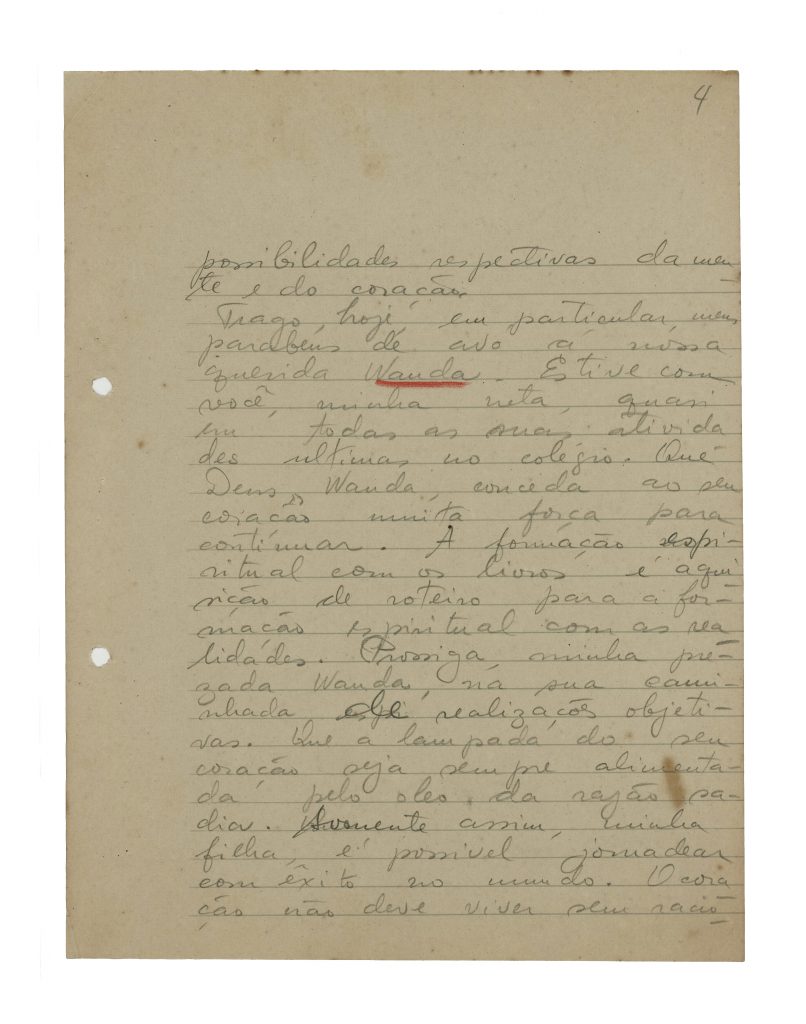 4
possibilidades respectivas da men
te e do coração.
Trago, hoje, em particular, meus
parabens de avo á nossa
querida Wanda. Estive com
você, minha neta, quasi
em todas as suas ativida
des ultimas no colégio. Que
Deus, Wanda, conceda ao seu
coração muita força para
continuar. A formação espi-
ritual com os livros é aqui
sição de roteiro para a for-
mação espiritual com as rea
lidades. Prossiga, minha pre-
zada Wanda, na sua cami-
nhada de realizações objeti-
vas. Que a lampada do seu
coração seja sempre alimenta-
da pelo oleo da razão sa-
dia. Somente assim, minha
filha, é possivel jornadear
com êxito no mundo. O cora
ção não deve viver sem racio-